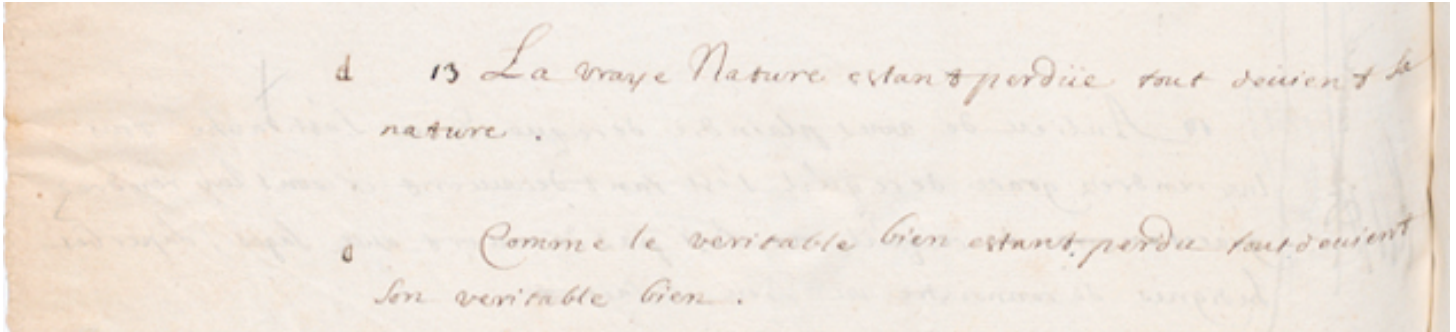 d 13 La vraye Nature estant perdüe tout deuient sa
nature .
o Comme le veritable bien estant perdu tout deuient
son veritable bien .